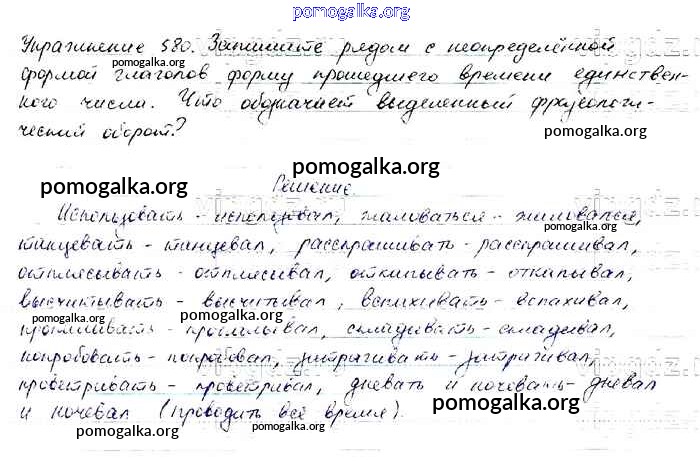 pomogalka.org
Упражнение 580. Запишите рядом с неопределённой
формой глаголов форму прошедшего времени единствен-
ного числа. Что обозначает выделенный фразеологи-
ческий оборот?
pomogalka.org
pomogalka.org
pomogalka.org
pomogalka.org
pomogalka.org
Решение.
Использовать - использовал, жаловаться - жаловался,
танцевать - танцевал, расспрашивать - расспрашивал,
отплясывать - отплясывал, откапывать - откапывал,
высчитывать - высчитывал, вспахивать - вспахивал,
pomogalka.org
pomogalka.org
складывать - складывал,
попробовать - попробовал, затрагивать - затрагивал,
проветривать - проветривал, дневать и ночевать - дневал
и ночевал (проводить всё время).
pomogalka.org
pomogalka.org
pomogalka.org